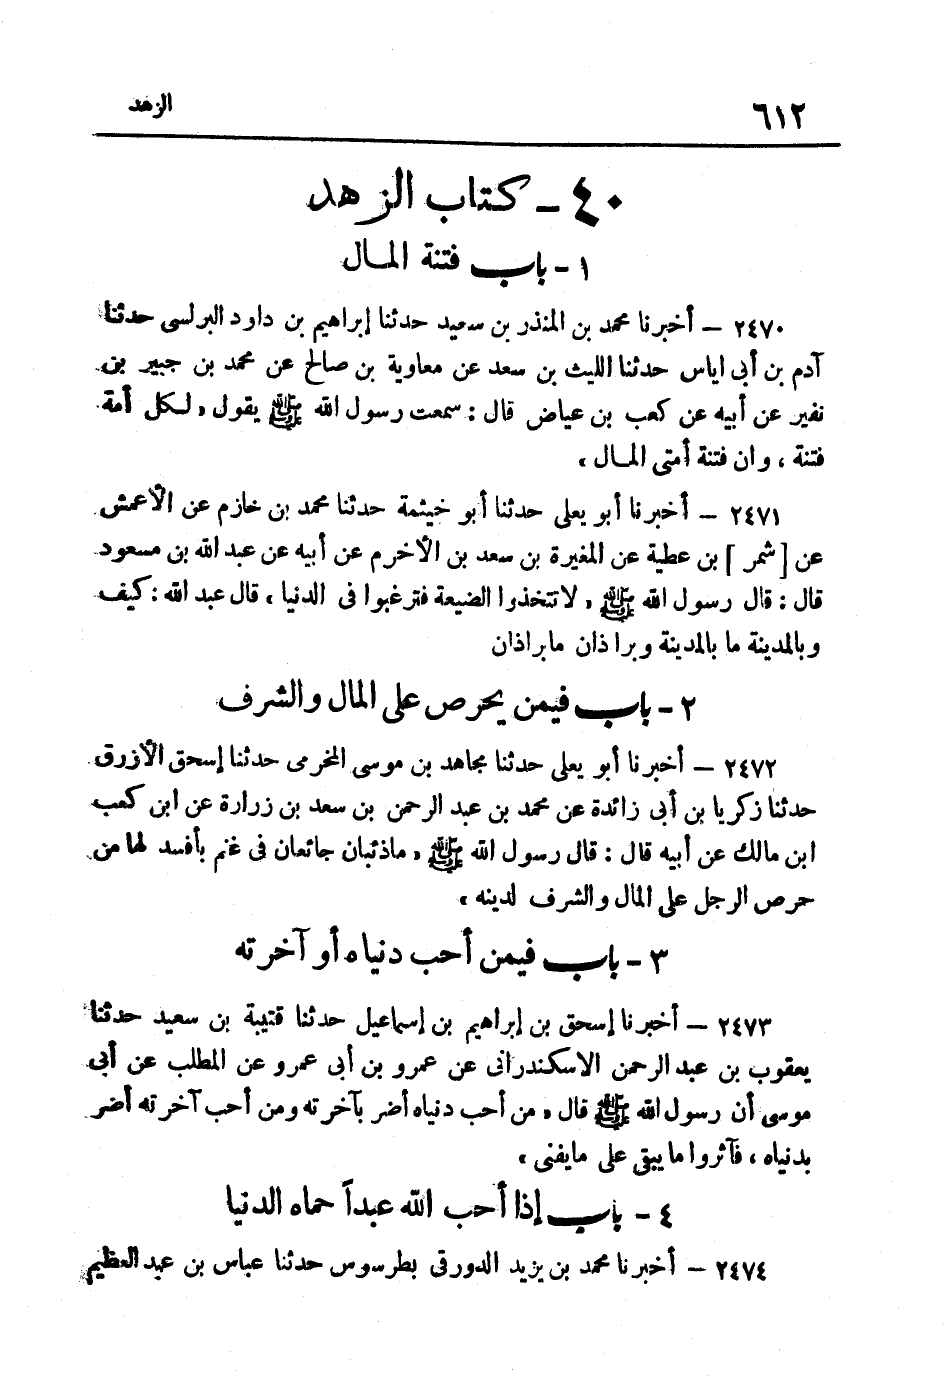 ٦١٢
الزهد
٤٠ - كتاب الزهد
١ - باب فتنة المال
٢٤٧٠ – أخبرنا محمد بن المنذر بن سعيد حدثنا إبراهيم بن داود البرلسى حدثنا
آدم بن أبى اياس حدثنا الليث بن سعد عن معاوية بن صالح عن محمد بن جبير بن
نفير عن أبيه عن كعب بن عياض قال : سمعت رسول الله ﷺ يقول « لكل أمة
فتنة ، وان فتنة أمتى المال »
٢٤٧١ – أخبرنا أبو يعلى حدثنا أبو خيثمة حدثنا محمد بن خازم عن الأعمش
عن [ شمر ] بن عطية عن المغيرة بن سعد بن الأخرم عن أبيه عن عبد الله بن مسعود
قال : قال رسول الله ﷺ « لا تتخذوا الضيعة فترغبوا فى الدنيا » قال عبد الله : كيف
وبالمدينة ما بالمدينة وبراذان مابراذان
٢ - باب فيمن يحرص على المال والشرف
٢٤٧٢ – أخبرنا أبو يعلى حدثنا مجاهد بن موسى المخرمى حدثنا إسحق الأزرق
حدثنا زكريا بن أبى زائدة عن محمد بن عبد الرحمن بن سعد بن زرارة عن ابن كعب
ابن مالك عن أبيه قال : قال رسول الله ﷺ « ماذئبان جائعان فى غنم بأفسد لها من
حرص الرجل على المال والشرف لدينه »
٣ - باب فيمن أحب دنياه أو آخرته
٢٤٧٣ – أخبرنا إسحق بن إبراهيم بن إسماعيل حدثنا قتيبة بن سعيد حدثنا
يعقوب بن عبد الرحمن الاسكندرانى عن عمرو بن أبى عمرو عن المطلب عن أبى
موسى أن رسول الله ﷺ قال « من أحب دنياه أضر بآخرته ومن أحب آخرته أضر
بدنياه ، فآثروا ما يبقى على مايفنى »
٤ - باب إذا أحب الله عبداً حماه الدنيا
٢٤٧٤ – أخبرنا محمد بن يزيد الدورقى بطرسوس حدثنا عباس بن عبد العظيم